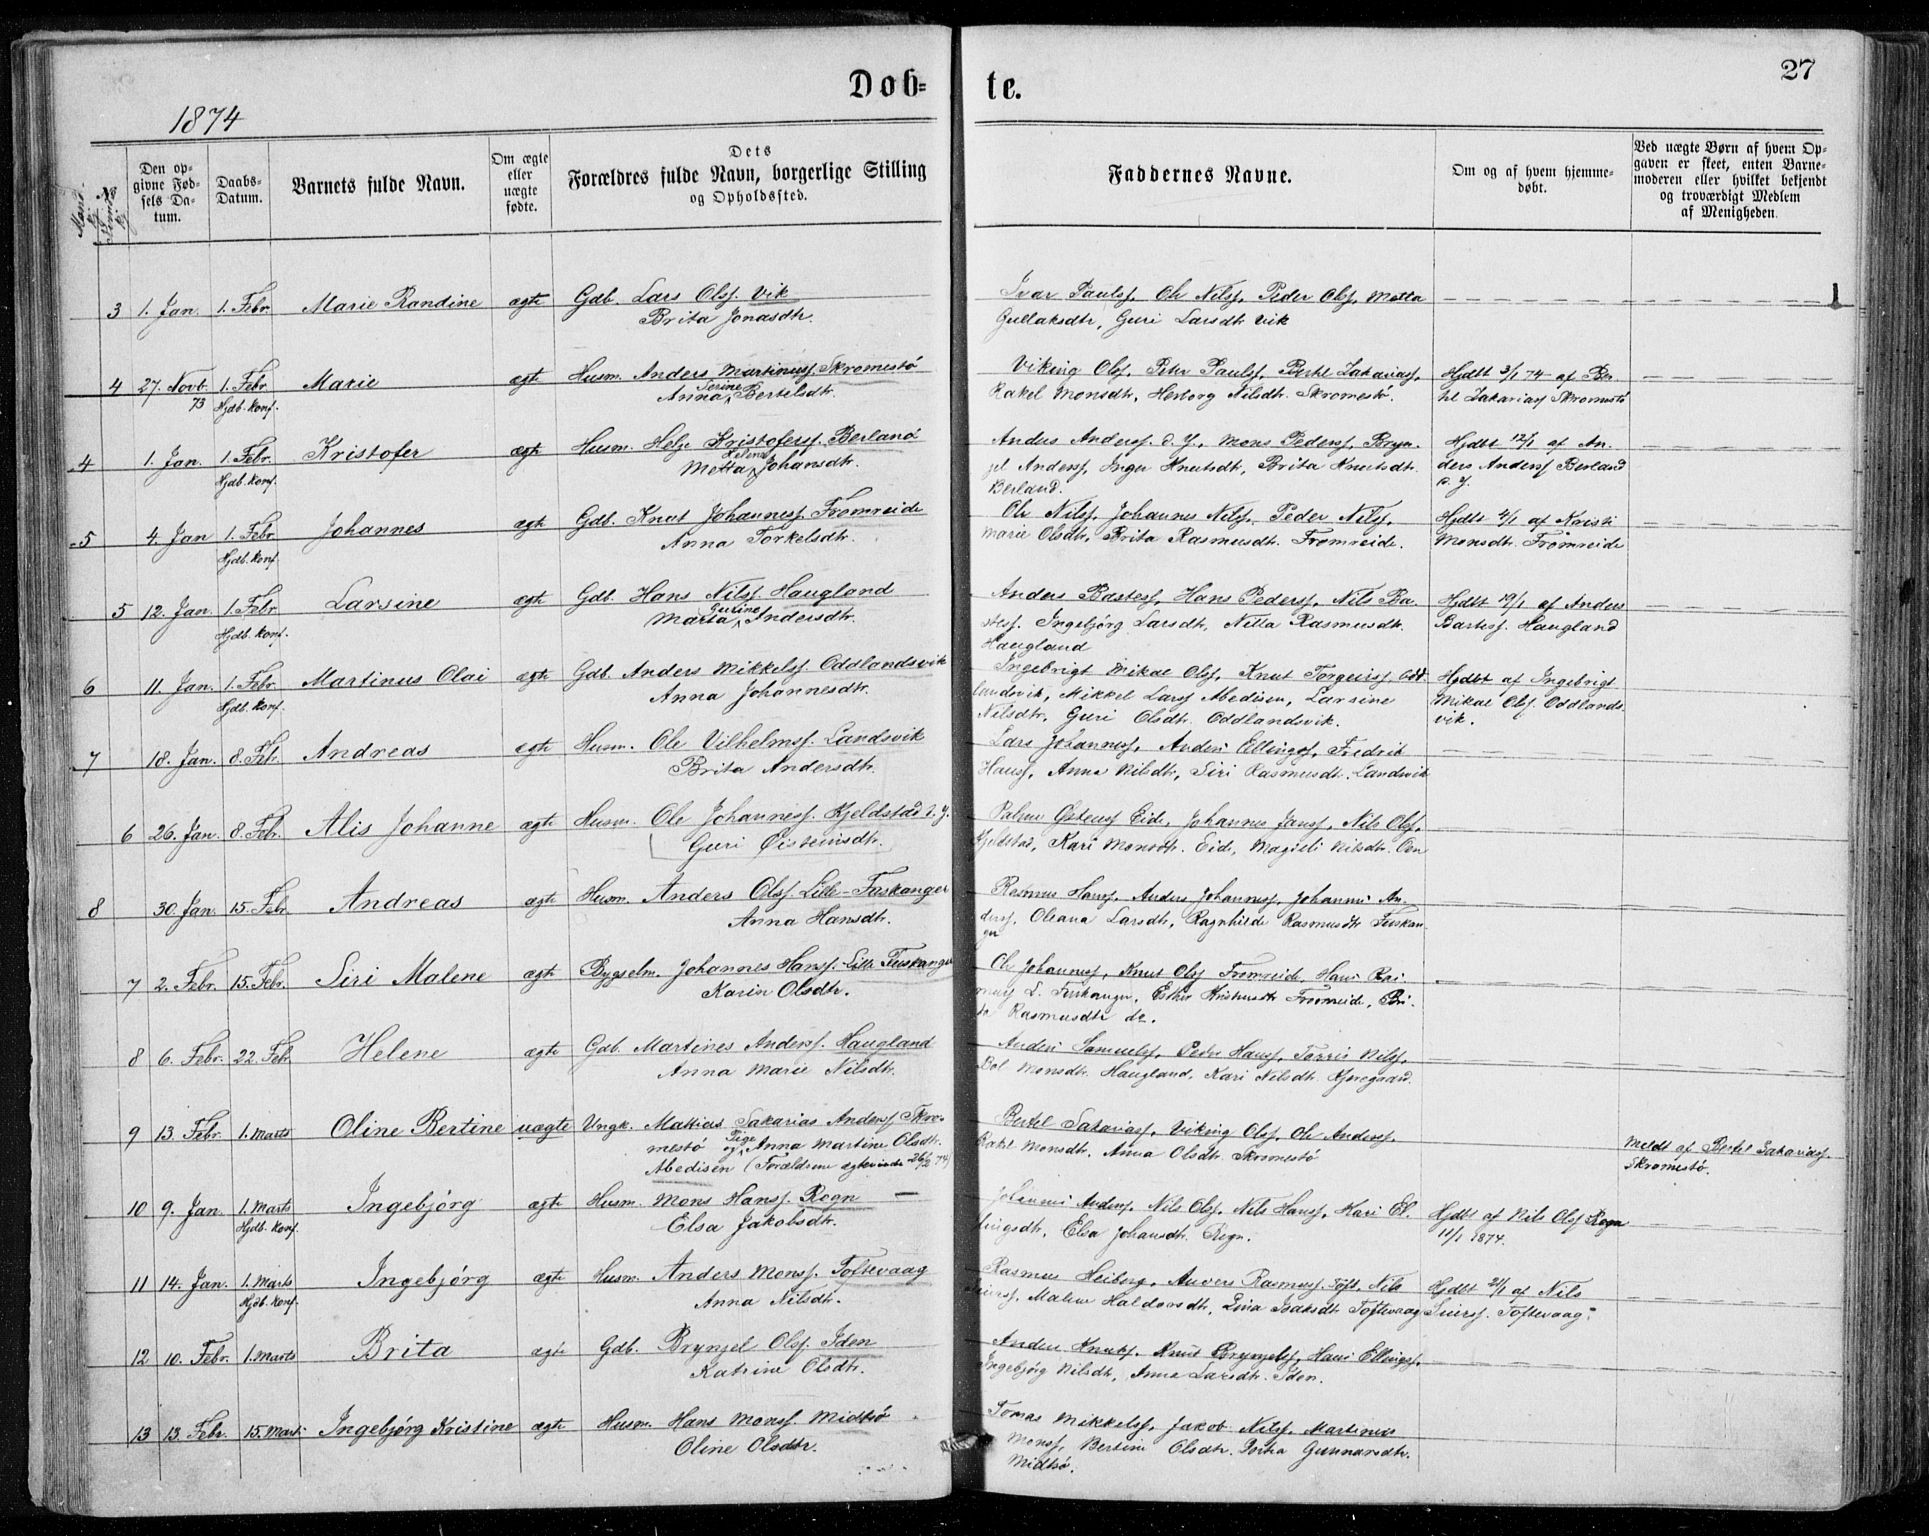 Døb=
te.
27
1874
Den op-
givne Fød-
sels Da-
tum.
Daabs-
Datum.
Barnets fulde Navn.
Om ægte
eller
uægte
fødte.
Dets
Forældres fulde Navn, borgerlige Stilling
og Opholdssted.
Faddernes Navne.
Om og af hvem hjemme-
døbt.
Ved uægte Børn af hvem Op-
gaven er skeet, enten Barne-
moderen eller hvilket bekjendt
og troværdigt Medlem
af Menigheden.
3 1. Jan. 1. Febr. Marie Randine ægte Gdb. Lars Olss. Vik
Brita Jonasdtr.
Ivar Paulss. Ole Nilss. Peder Olss. Metta
Gullaksdtr, Guri Larsdtr Vik
4 27. Novb. 1. Febr. Marie ægte Husm. Anders Martinuss. Skromestø
73 Hjdb. Konf. Anna Serine Bertelsdtr.
Viking Olss. Peter Paulss. Bertel Zakariass,
Rakel Monsdtr, Herborg Nilsdtr. Skromestø.
Hjdbt 3/1 74 af Ber
tel Zakariass Skromestø
4 1. Jan. 1. Febr. Kristofer ægte Husm. Helje Kristoferss. Berland
Hjdb. Konf. Metta Helena Johansdtr.
Anders Anderss. d. y., Mons Pederss, Bryn-
jel Anderss, Inger Knutsdtr, Brita Knutsdtr.
Berland.
Hjdbt 12/1 af An-
ders Anderss Berland
d. y.
5 4. Jan 1. Febr. Johannes ægte Gdb. Knut Johanness. Frømreide
Hjdb. Konf. Anna Torkelsdtr.
Ole Nilss, Johannes Nilss. Peder Nilss,
Marie Olsdtr, Brita Rasmusdtr. Frømreide.
Hjdbt 4/1 af Kristi
Monsdtr. Frømreide
5 12. Jan. 1. Febr. Larsine ægte Gdb. Hans Nilss. Haugland
Hjdb. Konf. Marta Gurine Andersdtr.
Anders Bastess, Hans Pederss, Nils Ba-
stess. Ingebjørg Larsdtr, Netta Rasmusdtr.
Haugland
Hjdbt 19/1 af Anders
Bastess. Haugland
6 11. Jan. 1. Febr. Martinus Olai ægte Gdb. Anders Mikkelss. Oddlandsvik
Hjdb. Konf. Anna Johannesdtr.
Ingebrigt Mikal Olss, Knut Torgeirss Odd
landsvik, Mikkel Larss Abedisen, Larsine
Nilsdtr, Guri Olsdtr. Oddlandsvik.
Hjdbt af Ingebrigt
Mikal Olss Oddlands
vik.
7 18. Jan. 8. Febr. Andreas ægte Husm. Ole Vilhelmss. Landsvik
Brita Andersdtr.
Lars Johanness, Anders Ellingss, Fredrik
Hanss, Anna Nilsdtr, Siri Rasmusdtr. Landsvik
6 26. Jan. 8. Febr. Alis Johanne ægte Husm. Ole Johanness. Kjeldstad d. y.
Guri Øisteinsdtr.
Palme Østenss Eide, Johannes Janss, Nils Olss,
Kjeldstad, Kari Monsdtr. Eide, Magdeli Nilsdtr.
8 30. Jan. 15. Febr Andreas ægte Husm. Anders Olss. Lille-Fuskanger
Anna Hansdtr.
Rasmus Hanss, Anders Johanness, Johannes An-
derss, Oleana Larsdtr, Ragnhilde Rasmusdtr Fuskan-
ger
7 2. Febr. 15. Febr. Siri Malene ægte Bygselm. Johannes Hanss. Lille Fuskanger
Karin Olsdtr.
Ole Johanness, Knut Olss Frømreide, Hans
L. Fuskanger, Frømreide, Bri-
ta Rasmusdtr do.
8 6. Febr. 22. Febr Helene ægte Gdb. Martines Anderss. Haugland
Anna Marie Nilsdtr.
Anders Samuelss, Peder Hanss, Torris Nilss,
Bol Monsdtr. Haugland, Kari Nilsdtr. Hjoregaard.
9 13. Febr. 1. Marts Oline Bertine uægte Ungk. Mathias Sakarias Anderss Skro-
mestø og Pige Anna Martine Olsdtr.
Abedisen (Forældrene ægteviede 26/2 74)
Bertel Sakariass, Viking Olss, Ole Anderss,
Rakel Monsdtr, Anna Olsdtr. Skromestø
Meldt af Bertel Sakariass.
Skromestø.
10 9. Jan. 1. Marts Ingebjørg ægte Husm. Mons Hanss. Rogn
Hjdb. Konf. Elsa Jakobsdtr.
Johannes Anderss, Nils Olss, Nils Hanss, Kari El-
lingsdtr, Elsa Johansdtr. Rogn.
Hjdbt af Nils Olss Rogn
11/1 1874.
11 14. Jan. 1. Marts Ingebjørg ægte Husm. Anders Monss. Toftevaag
Hjdb. Konf. Anna Nilsdtr.
Rasmus Heiberg, Anders Rasmuss. Toft, Nils
Seierss, Malene Haldorsdtr, Lina Isaksdtr Toftevaag
Hjdbt 21/1 af Nils
Seierss. Toftevaag.
12 10. Febr. 1. Marts Brita ægte Gdb. Brynjel Olss. Iden
Katrine Olsdtr.
Anders Knutss, Knut Brynjelss, Hans Ellingss,
Ingebjørg Nilsdtr, Anna Larsdtr. Iden.
13 13. Febr. 15. Marts Ingebjørg Kristine ægte Husm. Hans Monss. Midtsø
Oline Olsdtr.
Tomas Mikkelss, Jakob Nilss, Martines
Monss, Bertine Olsdtr. Gunnarsdtr.
Midtsø.